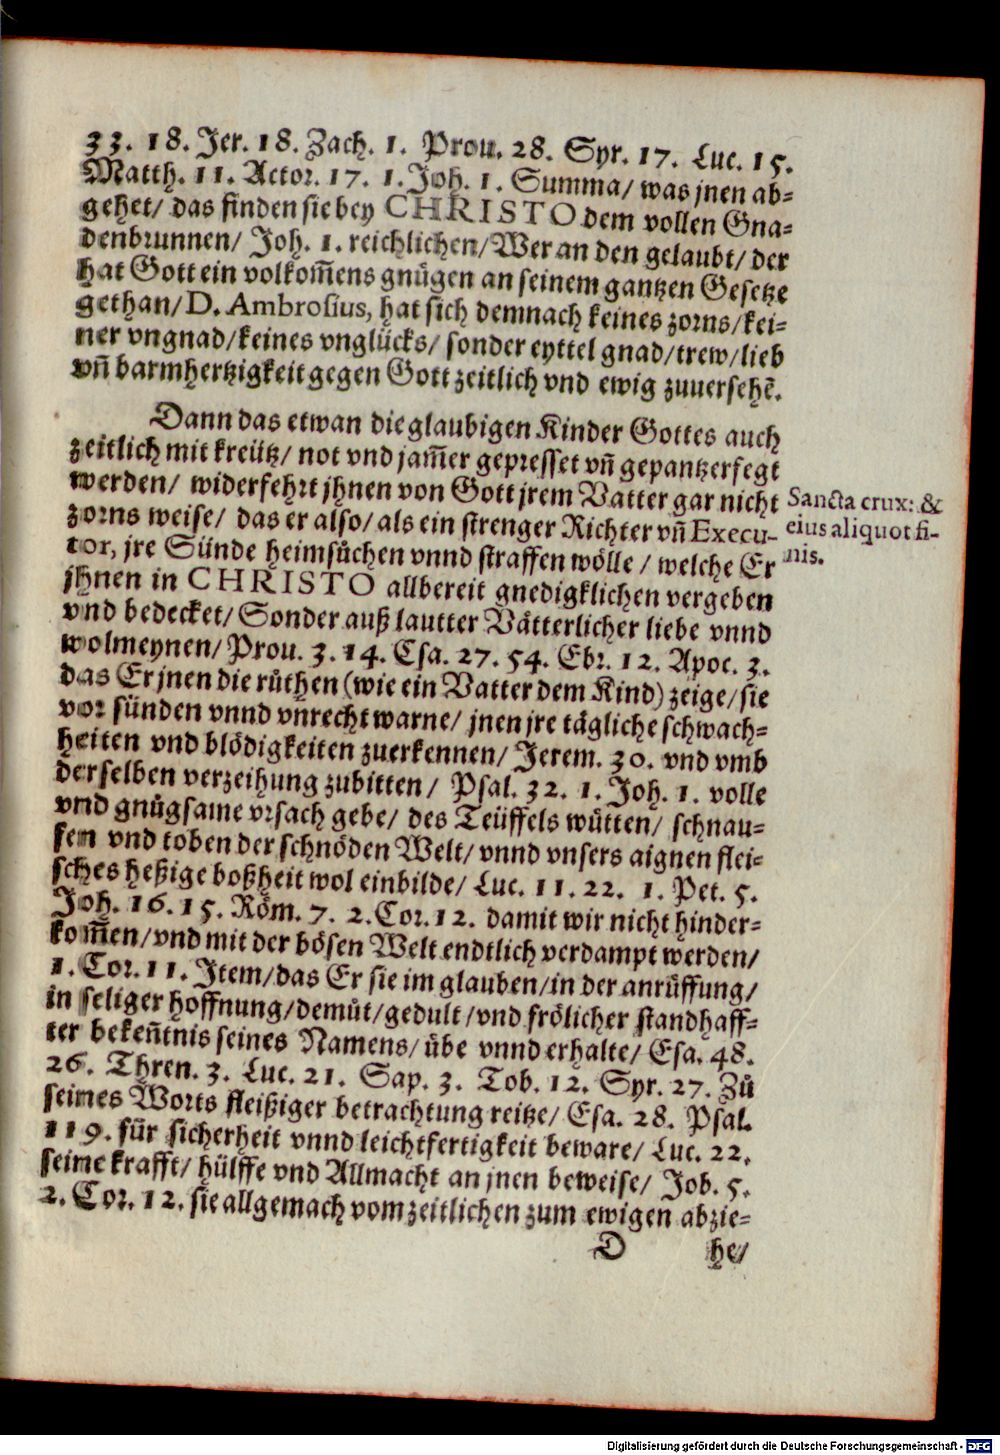 33. 18. Jer. 18. Zach. 1. Prou. 28. Syr. 17. Luc. 15.
Matth. 11. Actor. 17. 1. Joh. 1. Summa/ was jnen ab=
gehet/ das finden sie bey CHRISTO dem vollen Gna=
denbrunnen/ Joh. 1. reichlichen/ Wer an den gelaubt/ der
hat Gott ein volkom̃ens gnügen an seinem gantzen Gesetze
gethan/ D. Ambrosius, hat sich demnach keines zorns/ kei=
ner vngnad/ keines vnglücks/ sonder eyttel gnad/ trew/ lieb
vñ barmhertzigkeit gegen Gott zeitlich vnd ewig zuuersehẽ.
Dann das etwan die glaubigen Kinder Gottes auch
zeitlich mit kreütz/ not vnd jam̃er gepresset vñ gepantzerfegt
werden/ widerfehrt jhnen von Gott jrem Vatter gar nicht
zorns weise/ das er also/ als ein strenger Richter vñ Execu-
tor, jre Sünde heimsůchen vnnd straffen wölle/ welche Er
jhnen in CHRISTO allbereit gnedigklichen vergeben
vnd bedecket/ Sonder auß lautter Vätterlicher liebe vnnd
wolmeynen/ Prou. 3. 14. Esa. 27. 54. Ebr. 12. Apoc. 3.
das Er jnen die růthen (wie ein Vatter dem Kind) zeige/ sie
vor sünden vnnd vnrecht warne/ jnen jre tägliche schwach=
heiten vnd blödigkeiten zuerkennen/ Jerem. 30. vnd vmb
derselben verzeihung zubitten/ Psal. 32. 1. Joh. 1. volle
vnd gnůgsame vrsach gebe/ des Teüffels wütten/ schnau=
fen vnd toben der schnöden Welt/ vnnd vnsers aignen flei=
sches heßige boßheit wol einbilde/ Luc. 11. 22. 1. Pet. 5.
Joh. 16. 15. Röm. 7. 2. Cor. 12. damit wir nicht hinder=
kom̃en/ vnd mit der bösen Welt endtlich verdampt werden/
1. Cor. 11. Item/ das Er sie im glauben/ in der anrůffung/
in seliger hoffnung/ demůt/ gedult/ vnd frölicher standhaff=
ter bekeñtnis seines Namens/ übe vnnd erhalte/ Esa. 48.
26. Thren. 3. Luc. 21. Sap. 3. Tob. 12. Syr. 27. Zů
seines Worts fleißiger betrachtung reitze/ Esa. 28. Psal.
119. für sicherheit vnnd leichtfertigkeit beware/ Luc. 22.
seine krafft/ hülffe vnd Allmacht an jnen beweise/ Job. 5.
2. Cor. 12. sie allgemach vom zeitlichen zum ewigen abzie=
D he/
Sancta crux: &
eius aliquot fi-
nis.
Digitalisierung gefördert durch die Deutsche Forschungsgemeinschaft - DFG